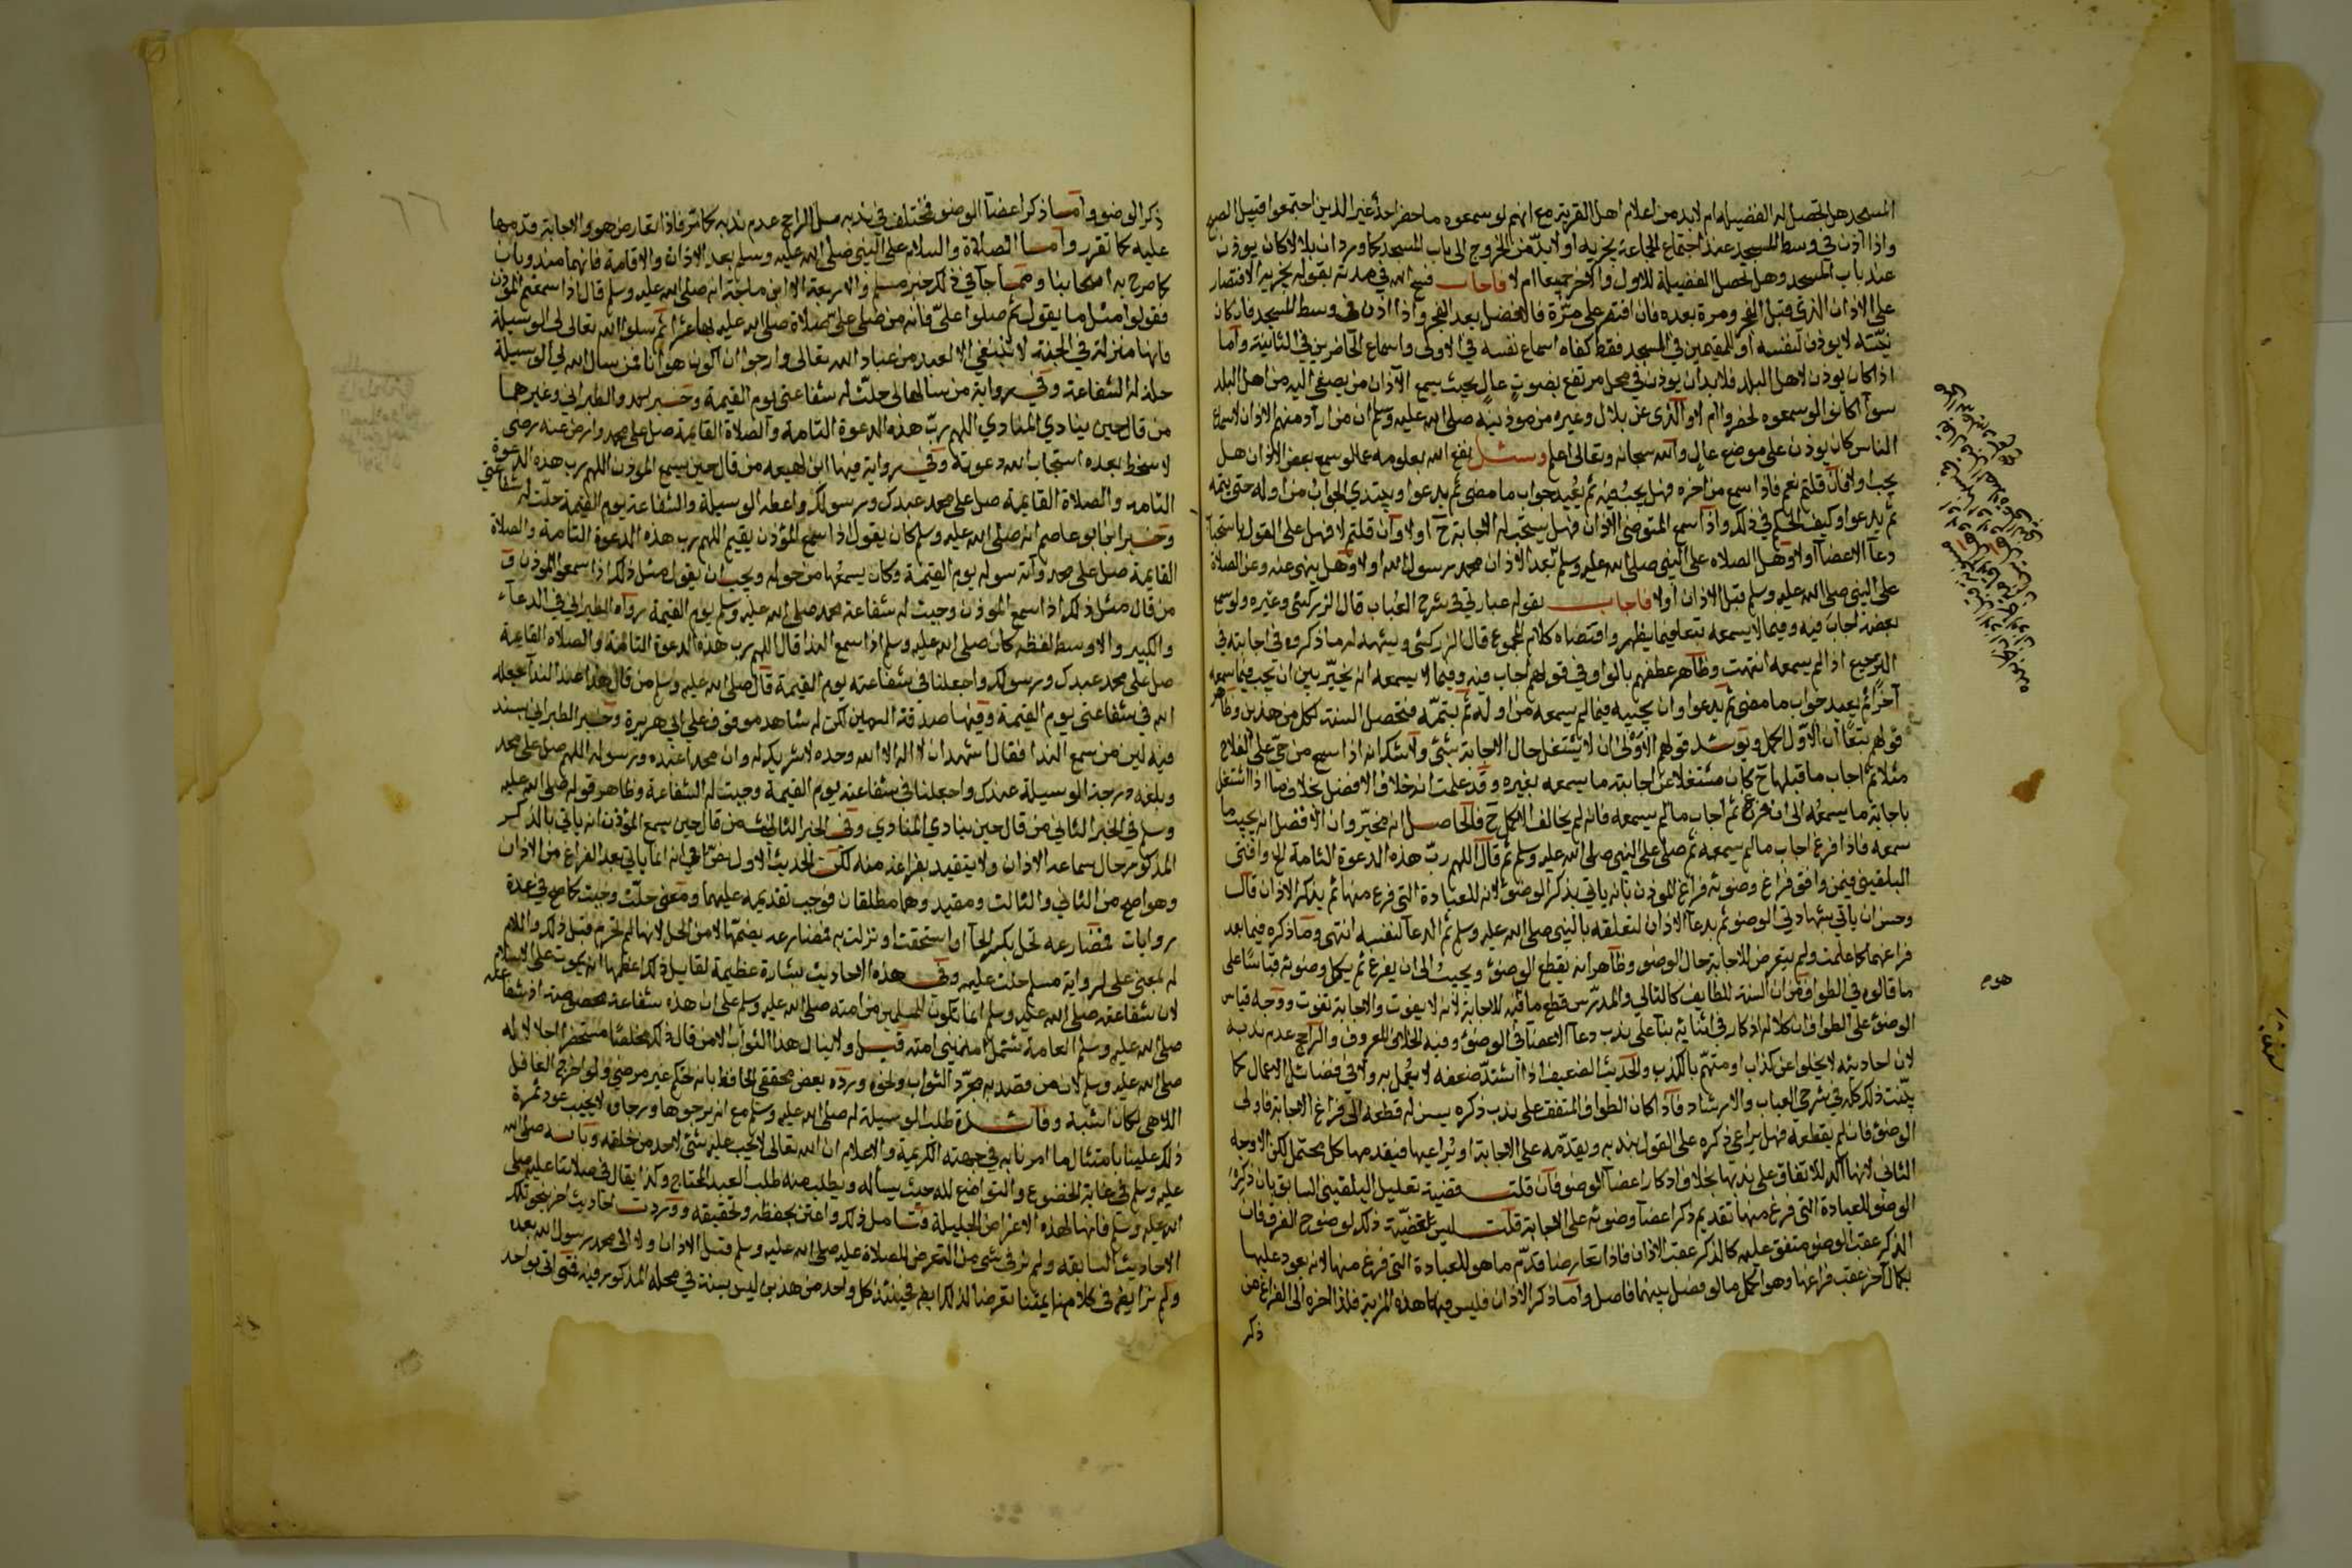 المسجد هل تحصل له الفضيلة ام لابد من اعلام اهل القرية مع انهم لو سمعوه ما حضر احد غير الذين اجتمعوا قبيل الصبح
واذا اذن في وسط المسجد عند اجتماع الجماعة يجزيه او لابد من الخروج الى باب المسجد كما ورد ان بلالا كان يوذن
عند باب المسجد وهل تحصل الفضيلة للاول والاخر جميعا ام لا فاجاب فسح الله في مدته بقوله يجزيه الاقتصار
على الاذان الذي قبل الفجر ومرة بعده فان اقتصر على مرة فالافضل بعد الفجر واذا اذن في وسط المسجد فان كان
نيته لا يوذن لنفسه او للمقيمين في المسجد فقط كفاه اسماع نفسه في الاولى واسماع الحاضرين في الثانية واما
اذا كان يوذن لاهل البلد فلابد ان يوذن في محل مرتفع بصوت عال بحيث يسمع الاذان من يصغي اليه من اهل البلد
سوآ اكانوا لو سمعوه لحضروا ام لا والذي عن بلال وغيره من موذنيه صلى الله عليه وسلم ان من اراد منهم الاذان لاسماع
الناس كان يوذن على موضع عال والله سبحانه وتعالى اعلم وسئل نفع الله بعلومه عما لو سمع بعض الاذان هل
يجب اولا فان قلتم نعم فاذا سمع من اخره فهل يجيبه ثم يعيد جواب ما مضى ثم يدعوا ويبتدي الجواب من اوله حتى يتمه
ثم يدعوا وكيف الحكم في ذلك واذا سمع المتوضئ الاذان فهل يستحب له الاجابة ح اولا وان قلتم لا فهل على القول باستحباب
دعآ الاعضآ اولا وهل الصلاه على النبي صلى الله عليه وسلم بعد الاذان محمد رسول الله اولا وهل ينهى عنه وعن الصلاة
على النبي صلى الله عليه وسلم قبل الاذان اولا فاجاب بقوله عبارتي في شرح العباب قال الزركشي وغيره ولو سمع
بعضه اجاب فيه وفيما لا يسمعه تبعا فيما يظهر واقتضاه كلام المجموع قال الزركشي ويشهد له ما ذكروه في اجابته في
الترجيع اذا لم يسمعه انتهت وظاهر عطفهم بالواو في قولهم اجاب فيه وفيما لا يسمعه انه يخير بين ان يجيب فيما سمعه
آخرا ثم يعيد جواب ما مضى ثم يدعوا وان يجيبه فيما لم يسمعه من اوله ثم يتمه فتحصل السنة لكل من هذين وظاهر
قولهم تبعا ان الاول اكمل ويويد قولهم الاولى ان لا يشتغل حال الاجابة بشئ ولا شك انه اذا سمع من حي على الفلاح
مثلا ثم اجاب ما قبلها ح كان مشتغلا عن اجابته ما يسمعه بغيره وقد علمت انه خلاف الافضل بخلاف ما اذا اشتغل
باجابة ما يسمعه الى ان فرغ ثم اجاب ما لم يسمعه فانه لم يخالف الاكمل ح فالحاصل انه مخير وان الافضل انه يجيب ما
سمعه فاذا فرغ اجاب ما لم يسمعه ثم صلى على النبي صلى الله عليه وسلم ثم قال اللهم رب هذه الدعوة التامة الخ وافتى
البلقيني فيمن وافق فراغ وضوئه فراغ الموذن بانه ياتي بذكر الوضوء لانه للعبادة التي فرغ منها ثم يذكر الاذان قال
وحسن ان ياتي بشهادتي الوضو ثم بدعآ الاذان لتعلقه بالنبي صلى الله عليه وسلم ثم الدعآ لنفسه انتهى وما ذكره فيما بعد
فراغهما كما علمت ولم يتعرض للاجابة حال الوضو وظاهر انه يقطع الوضوء ويجيب الى ان يفرغ ثم يكمل وضوئه قياسا على
ما قالوه في الطواف من ان السنة للطايف كالتالي والمدرس قطع ما فيه للاجابة لانه لا يفوت والاجابة تفوت ووجه قياس
الوضوء على الطواف ان كلا له اذكار في اثنائه بنآ على ندب دعآ الاعضآ في الوضوء وفيه الخلاف المعروف والراجح عدم ندبه
لان احاديثه لا يخلوا عن كذاب او متهم بالكذب والحديث الضعيف اذا اشتد ضعفه لا يعمل به ولا في فضائل الاعمال كما
بينت ذلك كله في شرحي العباب والارشاد فاذا كان الطواف المتفق على ندب ذكره يسن له قطعه الى فراغ الاجابة فاولى
الوضوء فان لم يقطعه فهل يراعي ذكره على القول بندبه ويقدمه على الاجابة او يراعيها فيقدمها كل محتمل لكن الاوجه
الثاني لانها آكد للاتفاق على ندبها بخلاف اذكار اعضآ الوضو فان قلت قضية تعليل البلقيني السابق بان ذكر
الوضو للعبادة التي فرغ منها تقديم ذكر اعضآ وضوئه على الاجابة قلت ليس قضيته ذلك لوضوح الفرق فان
الذكر عقب الوضو متفق عليه كالذكر عقب الاذان فاذا تعارضا قدم ما هو للعبادة التي فرغ منها لانه يعود عليها
بكمال آخر عقب فراغها وهو اكمل مما لو فصل بينهما فاصل واما ذكر الاذان فليس فيها هذه المزية فلذا اخره الى الفراغ من
ذكر
ذكر الوضو واما ذكر اعضآ الوضو فمختلف في ندبه بل الراجح عدم ندبه كما مر فاذا تعارض هو والاجابة قدمها
عليه كما تقرر واما الصلاة والسلام على النبي صلى الله عليه وسلم بعد الاذان والاقامة فانهما مندوبان
كما صرح به اصحابنا ومما جآ في ذلك خبر مسلم والاربعة الا ابن ماجة انه صلى الله عليه وسلم قال اذا سمعتم الموذن
فقولوا مثل ما يقول ثم صلوا علي فانه من صلى علي صلاة صلى الله عليه بها عشرا ثم سلوا الله تعالى لي الوسيلة
فانها منزلة في الجنة لا تنبغي الا لعبد من عباد الله تعالى وارجوا ان اكون هو انا فمن سال الله لي الوسيلة
حلت له الشفاعة وفي رواية من سالها لي حلت له شفاعتي يوم القيمة وخبر احمد والطبراني وغيرهما
من قال حين ينادي المنادي اللهم رب هذه الدعوة التامة والصلاة القايمة صل على محمد وارض عنه رضى
لا سخط بعده استجاب الله دعوته وفي رواية فيها ابن لهيعه من قال حين يسمع الموذن اللهم رب هذه الدعوة
التامه والصلاة القايمة صل على محمد عبدك ورسولك واعطه الوسيلة والشفاعة يوم القيمة حلت له شفاعتي
وخبر ابن ابو عاصم انه صلى الله عليه وسلم كان يقول اذا سمع المؤذن يقيم اللهم رب هذه الدعوة التامة والصلاة
القايمة صل على محمد وآته سوله يوم القيمة وكان يسمعها من حوله ويحب ان يقولوا مثل ذلك اذا سمعوا الموذن و
من قال مثل ذلك اذا سمع الموذن وجبت له شفاعة محمد صلى الله عليه وسلم يوم القيمة رواه الطبراني في الدعآء
والكبير والاوسط لفظه كان صلى الله عليه وسلم اذا سمع الندا قال اللهم رب هذه الدعوة التامة والصلاه القايمة
صل على محمد عبدك ورسولك واجعلنا في شفاعته يوم القيمة قال صلى الله عليه وسلم من قال هذا عند الندآ جعله
الله في شفاعتي يوم القيمة وفيها صدقة السمين لكن له شاهد موقوف على ابي هريرة وخبر الطبراني بسند
فيه لين من سمع الندا فقال اشهد ان لا اله الا الله وحده لا شريك له وان محمدا عبده ورسوله اللهم صل على محمد
وبلغه درجة الوسيلة عندك واجعلنا في شفاعته يوم القيمة وجبت له الشفاعة وظاهر قوله صلى الله عليه
وسلم في الخبر الثاني من قال حين ينادي المنادي وفي الخبر الثالث من قال حين يسمع المؤذن انه ياتي بالذكر
المذكور حال سماعه الاذان ولا يتقيد بفراغه منه لكن الحديث الاول نص في انه انما ياتي بعد الفراغ من الاذان
وهو اصح من الثاني والثالث ومقيد وهما مطلقان فوجب تقديمه عليهما ومعنى حلت وجبت كما صح في عدة
روايات فمضارعه تحل بكسر الحآ او استحقت او نزلت به فمضارعه بضمها لا من الحل لانها لم تحرم قبل ذلك واللام
له بمعنى على لرواية مسلم حلت عليه وفي هذه الاحاديث بشارة عظيمة لقايل ذلك اعظمها انه يموت على الاسلام
لان شفاعته صلى الله عليه وسلم انما تكون للمسلمين من امته صلى الله عليه وسلم على ان هذه شفاعة مخصوصة اذ شفاعته
صلى الله عليه وسلم العامة تشمل المذنبين امته قيل ولا ينال هذا الثواب الا من قال ذلك مخلصا مستحضرا اجلاله
صلى الله عليه وسلم لان من قصد به مجرد الثواب ونحوه ورده بعض محققي الحافظ بانه تحكم غير مرضي ولو اخرج الغافل
اللاهي لكان اشبه وفائدة طلب الوسيلة له صلى الله عليه وسلم مع انه يرجوها ورجاؤه لا يخيب عود ثمرة
ذلك علينا بامتثال ما امرنا به في جهته الكريمة والاعلام ان الله تعالى لا يجب عليه شئ لاحد من خلقه وبانه صلى الله
عليه وسلم في غاية الخضوع والتواضع لله حيث يسأله ويطلب منه طلب العبد المحتاج وكذا يقال في صلاتنا عليه صلى
الله عليه وسلم فانها لهذه الاغراض الجليلة فتامل ذلك واعتن بحفظه وتحقيقه ووردت احاديث اخر بنحو تلك
الاحاديث السابقه ولم نر في شئ منها التعرض للصلاة عليه صلى الله عليه وسلم قبل الاذان ولا الى محمد رسول الله بعده
ولم نر ايضا في كلام ائمتنا تعرضا لذلك ايضا فحينئذ كل واحد من هذين ليس بسنة في محله المذكور فيه فمن اتى بواحد